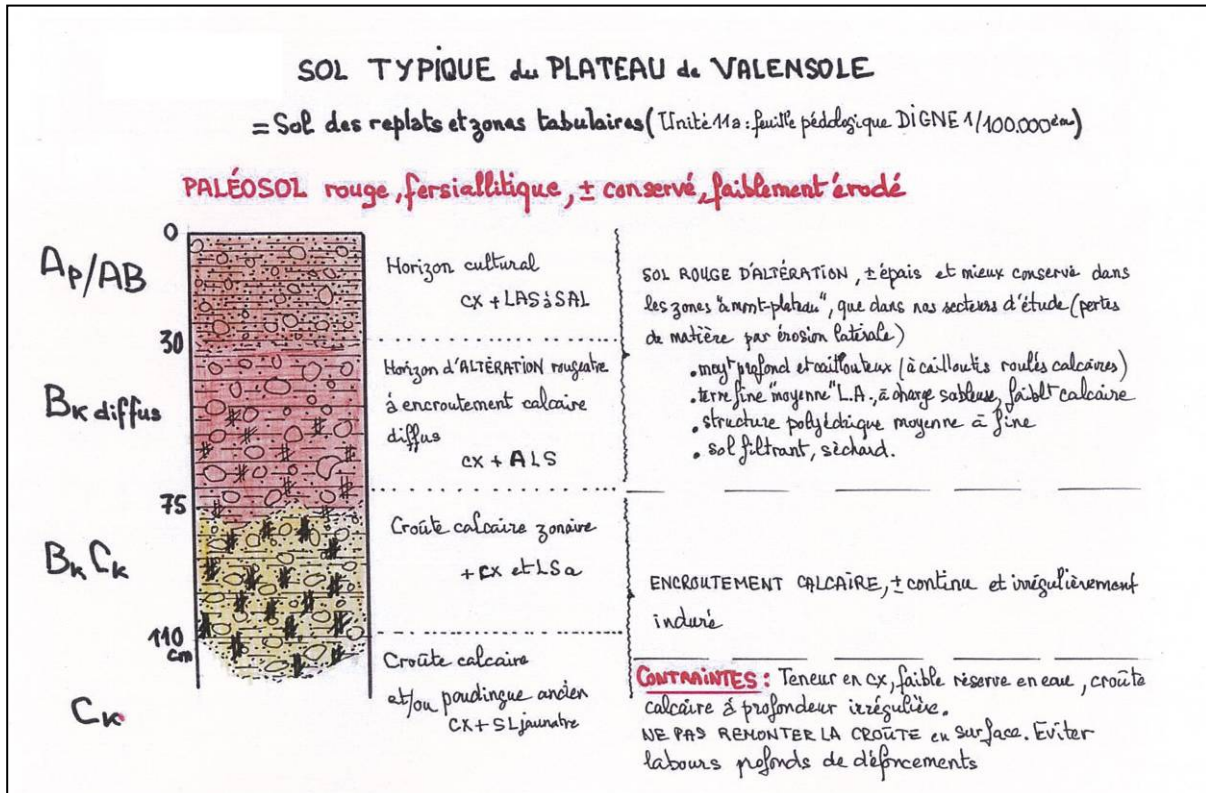 SOL TYPIQUE du PLATEAU de VALENSOLE
= Sol des replats et zones tabulaires (Unité 11a : feuille pédologique DIGNE 1/100.000ème)
PALÉOSOL rouge, fersiallitique, ± conservé, faiblement érodé
0
Ap/AB
30
Bk diffus
75
BkCk
110
cm
Ck
Horizon cultural
cx + LAS à SAL
Horizon d'ALTÉRATION rougeatre
à encroutement calcaire
diffus
cx + ALS
Croûte calcaire zonaire
+ cx et LSa
Croûte calcaire
et/ou poudingue ancien
cx + SL jaunatre
SOL ROUGE D'ALTÉRATION, ± épais et mieux conservé dans
les zones "amont-plateau", que dans nos secteurs d'étude (pertes
de matière par érosion latérale)
• moyt profond et caillouteux (à cailloutis roulés calcaires)
• terre fine "moyenne" L.A., à charge sableuse, faiblt calcaire
• structure polyédrique moyenne à fine
• sol filtrant, sèchard.
ENCROUTEMENT CALCAIRE, ± continu et irrégulièrement
induré
CONTRAINTES : Teneur en cx, faible réserve en eau, croûte
calcaire à profondeur irrégulière.
NE PAS REMONTER LA CROÛTE en surface. Eviter
labours profonds de défoncements